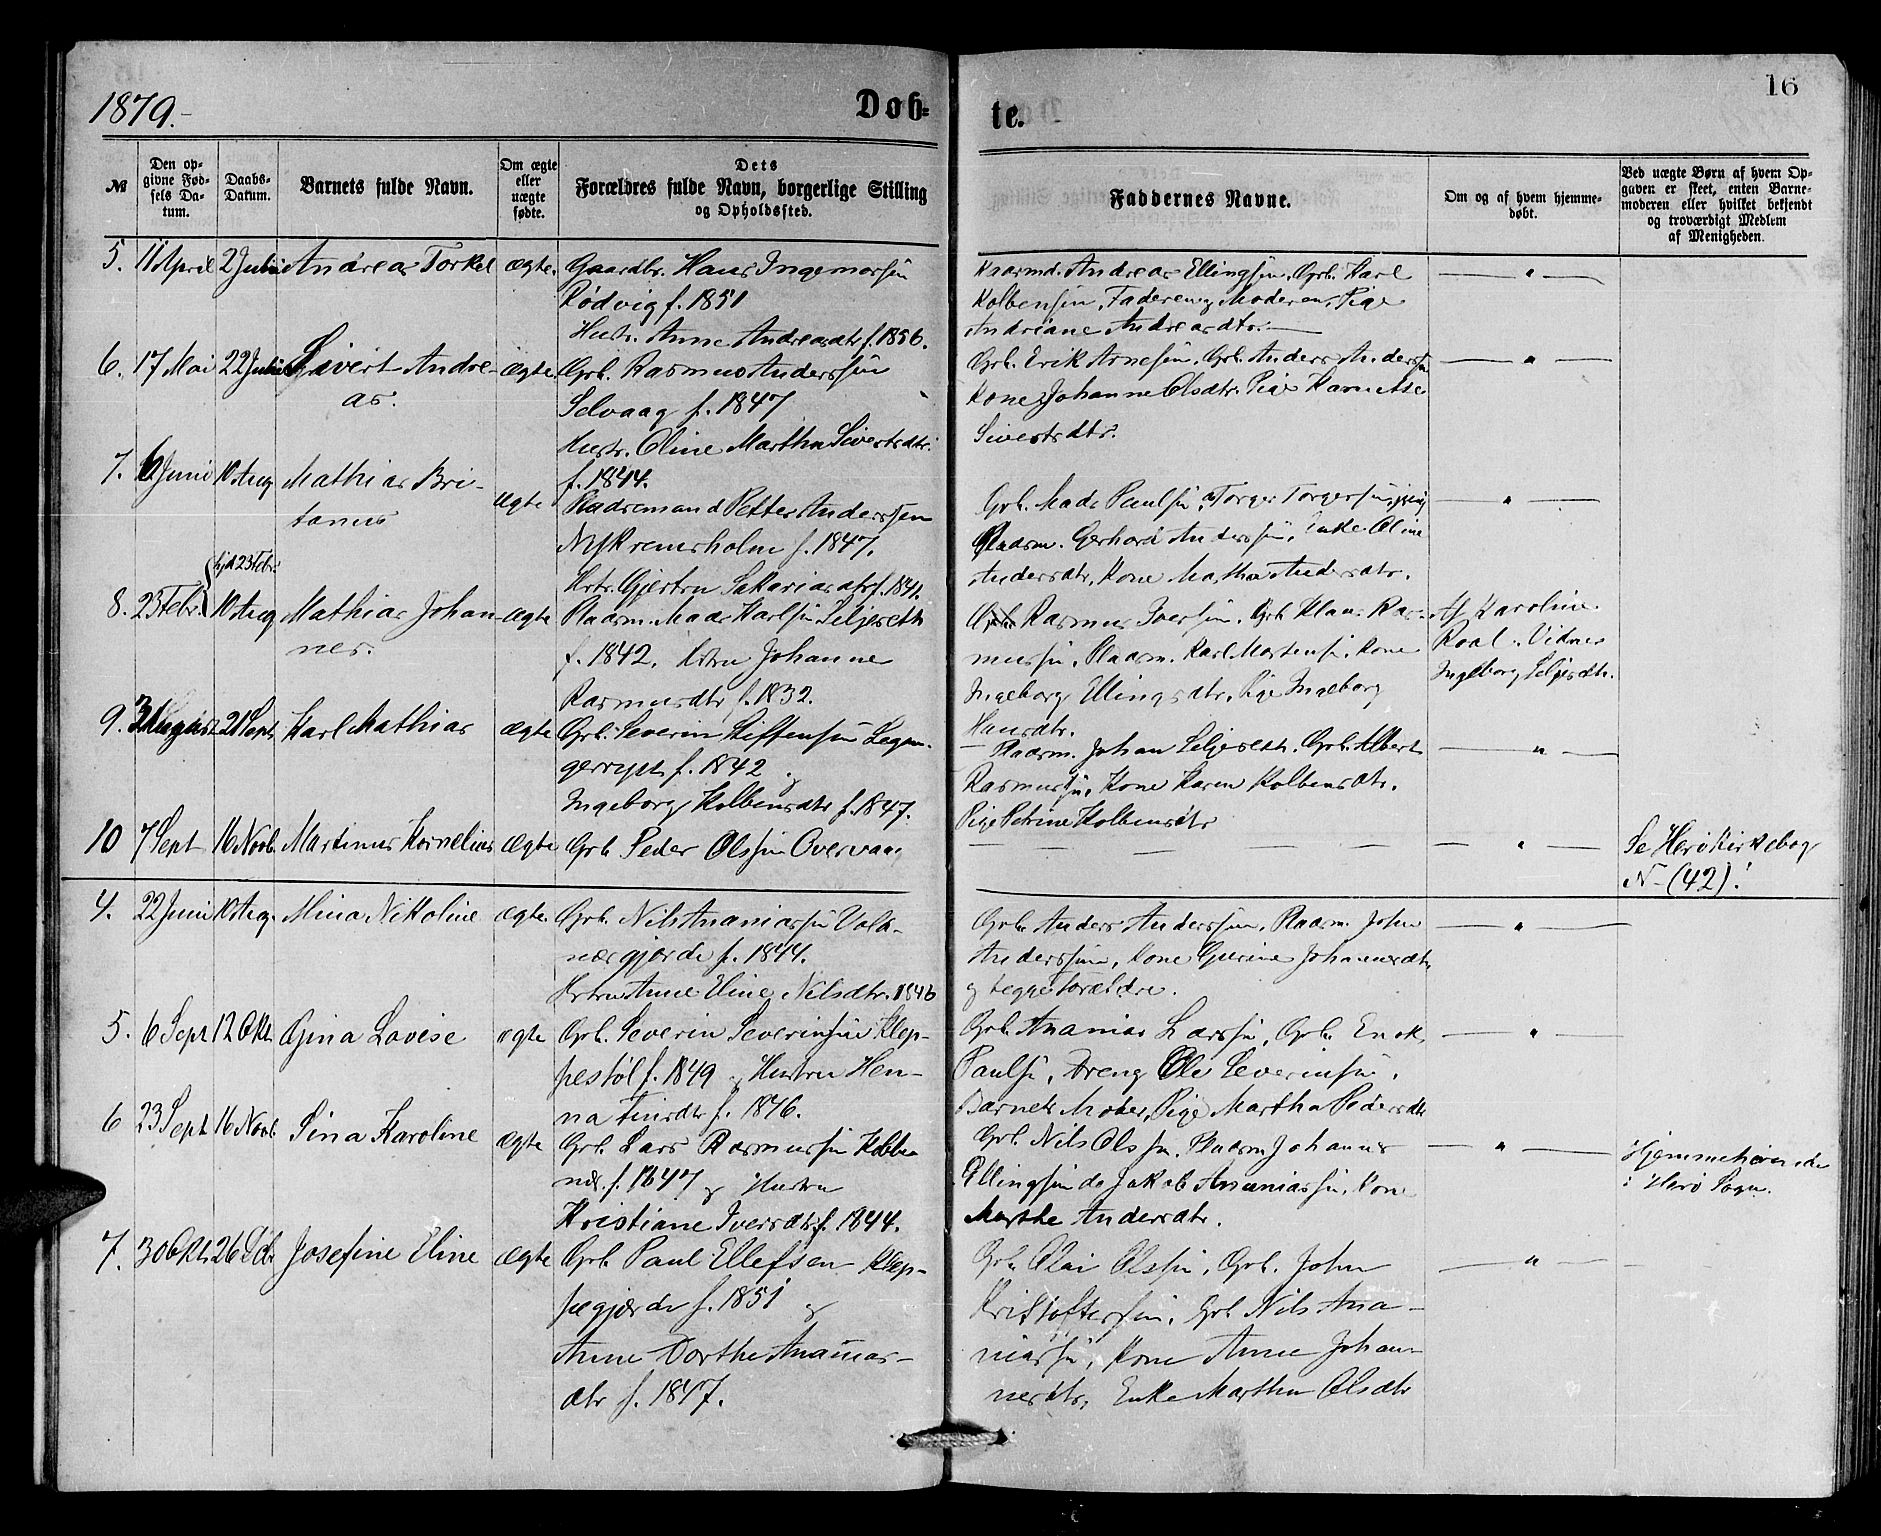 1879.-
Døb-
te.
16
№
Den op-
givne Fød-
sels Da-
tum.
Daabs-
Datum.
Barnets fulde Navn.
Om ægte
eller
uægte
fødte.
Dets
Forældres fulde Navn, borgerlige Stilling
og Opholdssted.
Faddernes Navne.
Om og af hvem hjemme-
døbt.
Ved uægte Børn af hvem Op-
gaven er skeet, enten Barne-
moderen eller hvilket bekjendt
og troværdigt Medlem
af Menigheden.
5. 11 April 2 Juni Andreas Torkel ægte. Gaardbr. Hans Ingemarsen
Rødvig f. 1851
Hustr. Anne Andreasdtr f. 1856.
Andreas Ellingsen, Grb. Karl
Kolbensen, Faderen og Moderen, Pige
Andriane Andreasdtr.
6. 17 Mai 22 Juni Sivert Andre-
as.
ægte. Grb. Rasmus Anderssen
Selvaag f. 1847
Hustr. Oline Martha Sivertsdtr.
f. 1844.
Grb. Erik Arnesen, Grb. Anders Anderssn
Kone Johanne Olsdtr. Pige
Sivertsdtr.
7. 6 Juni 10 Aug Mathias Bri-
tanus
ægte Pladsmand Petter Anderssen
f. 1847.
Hstr. Gjertru Sakariasdtr f. 1841.
Grb. Mads Paulsen, Torger Torgersen,
Pladsm. Gerhard Anderssen, Enke Oline
Andersdtr, Kone Martha Andersdtr.
8. 23 Febr. hjd 23 Febr. 10 Aug Mathias Johan-
nes.
ægte Pladsm. Mads Karlsen Seljeseth
f. 1842. Hstru Johanne
Rasmusdtr f. 1832.
Rasmus Iversen, Grb Klaus Ras-
mussen, Pladsm. Karl Mortensen, Kone
Ingeborg Ellingsdtr, Pige Ingeborg
Hansdtr.
Af Karoline
Roal. Vidnes
Ingeborg
9. August 21 Sept. Karl Mathias ægte Grb. Severin Steffensen
f. 1842 og
Ingeborg Kolbensdtr f. 1847.
Pladsm. Johan Seljeseth. Grb. Albert
Rasmussen, Kone Karen Kolbensdtr.
Pige Petrine Kolbensdtr
10 7 Sept 16 Novb. Martinus Kornelius ægte Grb. Peder Olssen Overvaag
Se Herø Kirkebog
N- (42)!
4. 22 Juni 10 Aug. Mina Nikoline ægte Grb. Nils Ananiassen Vold-
nesgjerde f. 1844.
Hstru Anne Eline Nilsdtr. 1846
Grb. Anders Anderssen, Pladsm. John
Anderssen, Kone Gurine Johannesdtr,
og begge Forældre.
5. 6 Sept 12 Okt. Gina Lovise ægte Grb. Severin Severinsen Klep-
pestøl f. 1849 og Hustru Hen-
na f. 1846.
Grb. Ananias Larssen, Grb. Enok
Paulsen, Dreng Ole Severinsen,
Barnets Moder, Pige Martha Pedersdtr
6 23 Sept 16 Novb. Sina Karoline ægte Grb. Lars Rasmussen
f. 1847 og Hustru
Kristiane Iversdtr f. 1844.
Grb. Nils Olssen, Pladsm. Johannes
Ellingsen do Jakob Ananiassen, Kone
Marthe Andersdtr.
Hjemmehørende
i Herø Sogn.
7. 30 Okt. 26 Dcb. Josefine Eline ægte Grb. Paul Ellefsen Klep-
pegjærde f. 1851 og
Anne Dorthe Ananias-
dtr f. 1847.
Grb. Olai Olssen, Grb. John
Kristoffersen, Grb. Nils Ana-
niassen, Kone Anne Johan-
nesdtr, Enke Martha Olsdtr